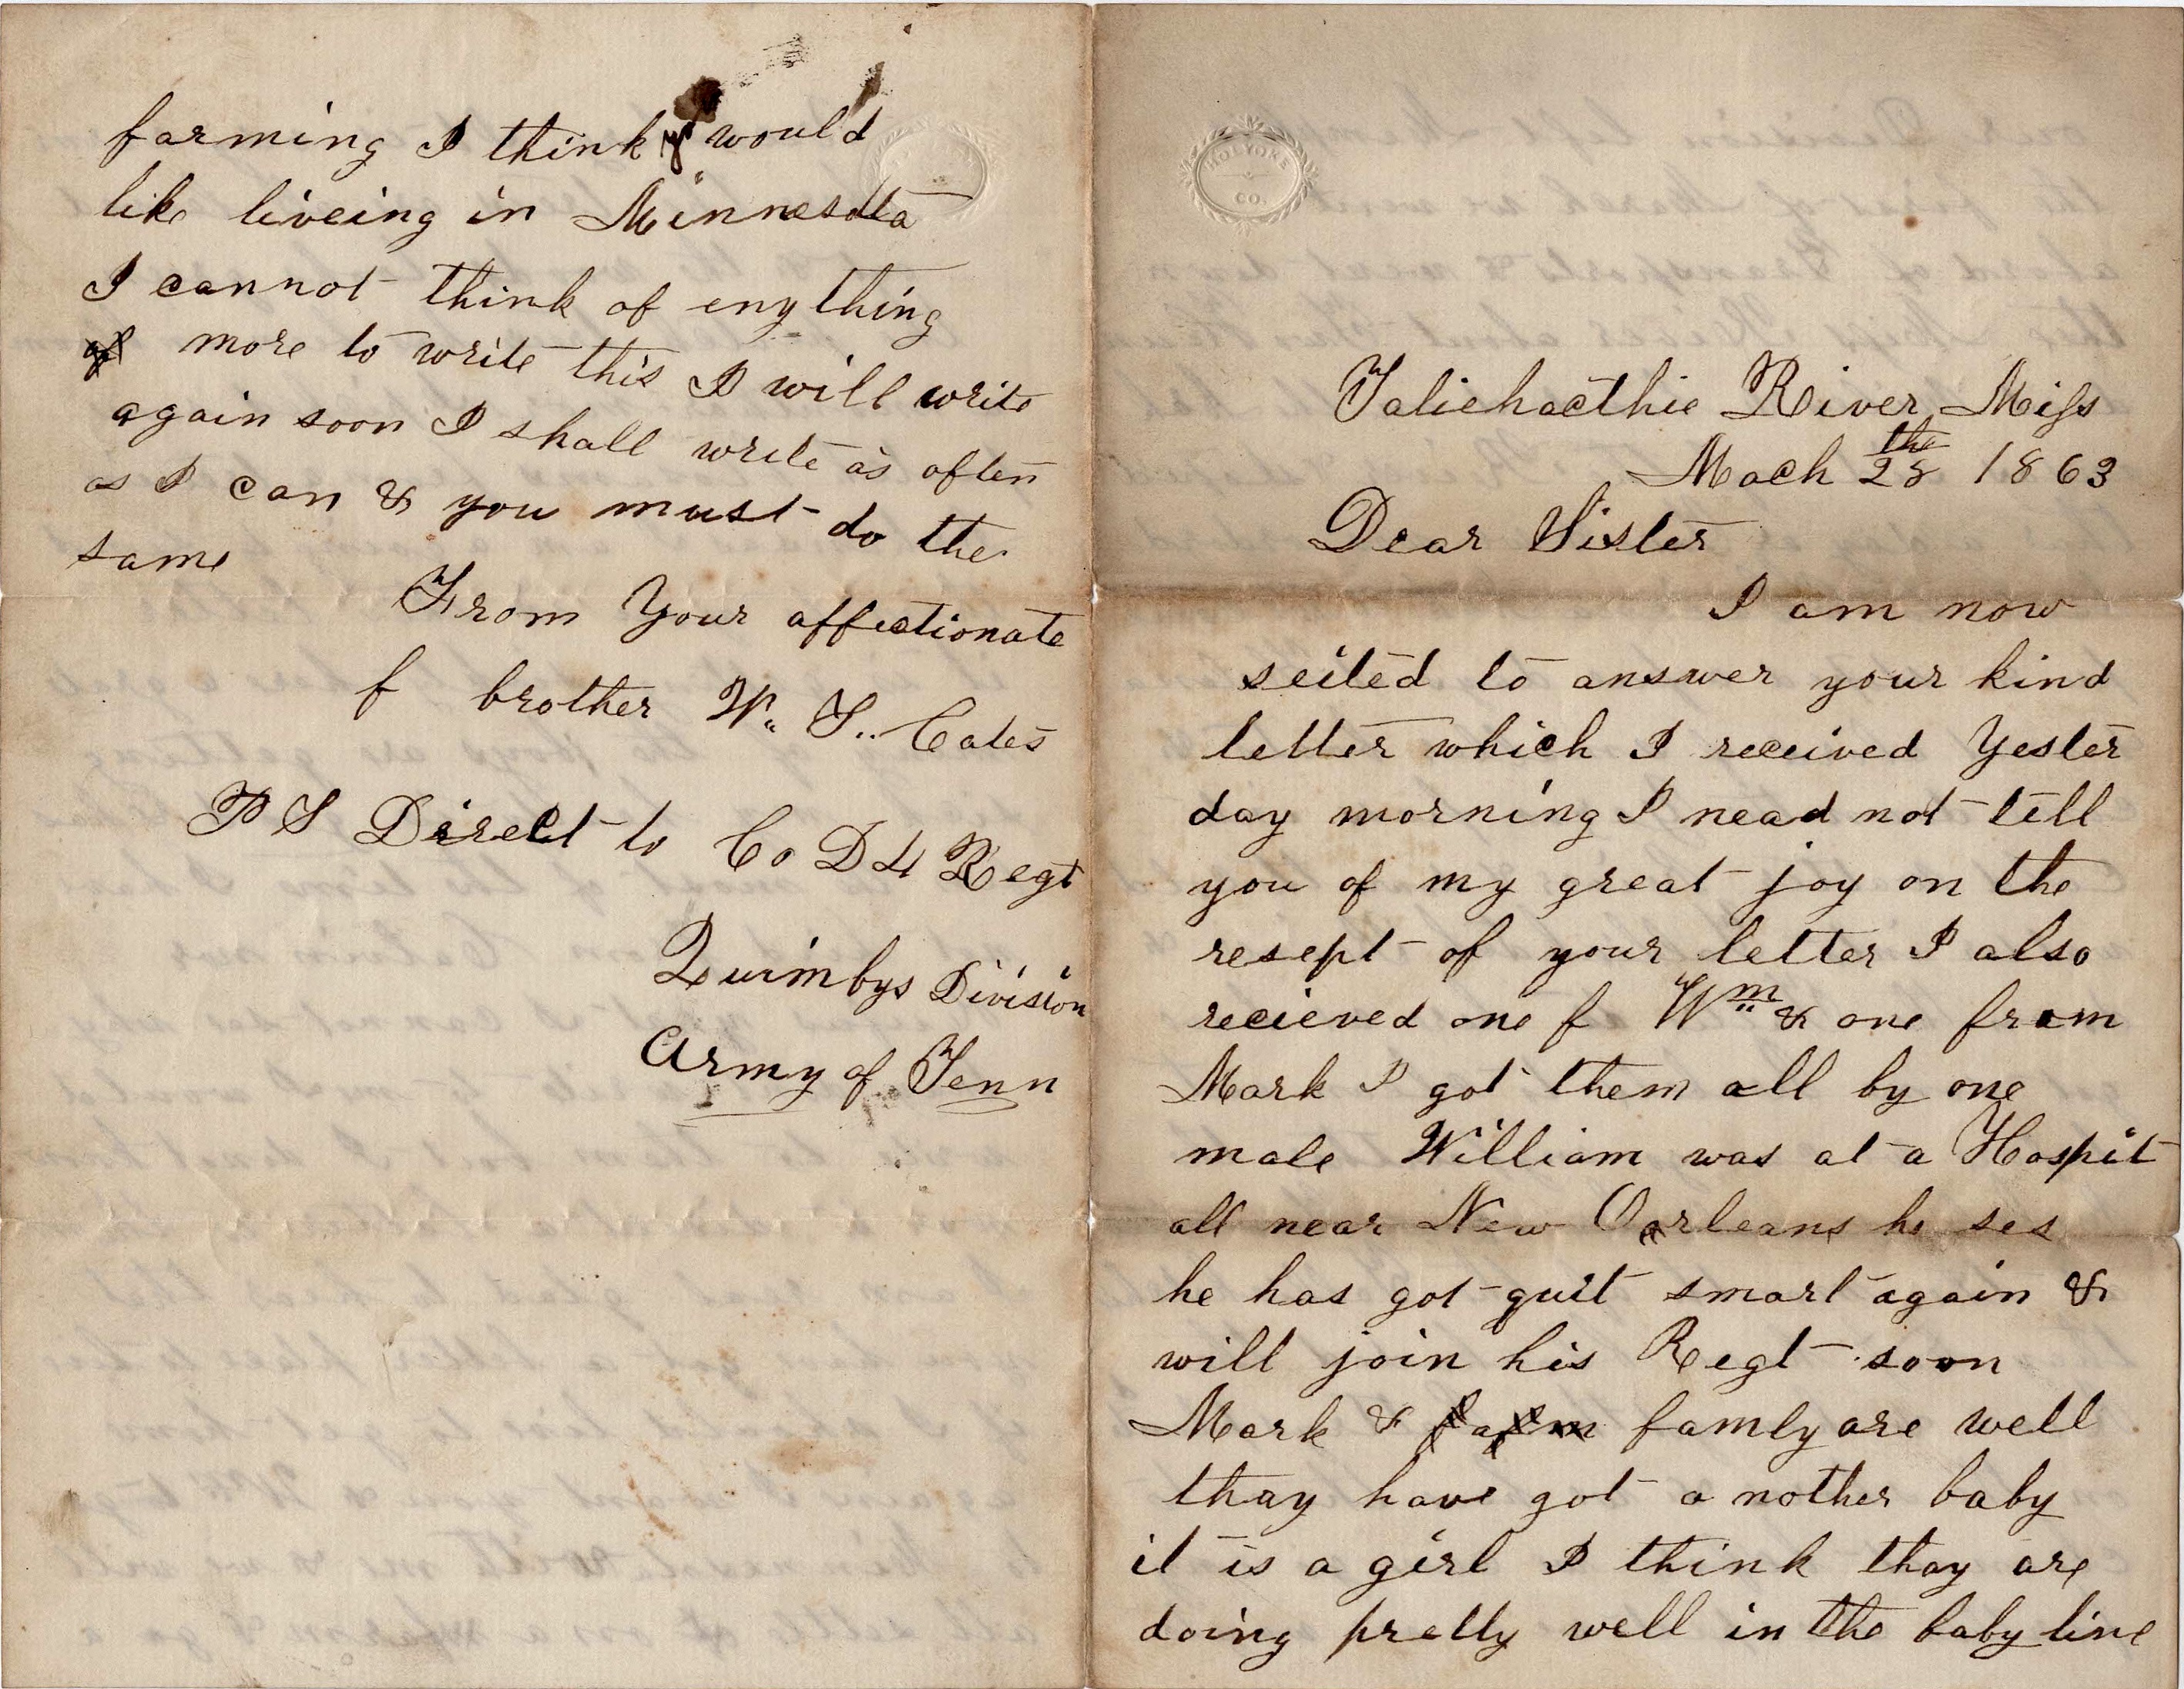 HOLYOKE
CO.
Taliehacthie River Miss
Mach 28th 1863
Dear Sister
I am now
seited to answer your kind
letter which I received Yester
day morning I nead not tell
you of my great joy on the
resept of your letter I also
recieved one f Wm & one from
Mark I got them all by one
male William was at a Hospit
all near New Orleans he ses
he has got quit smart again &
will join his Regt soon
Mark & famly are well
thay have got a nother baby
it is a girl I think thay are
doing pretty well in the baby line
farming I think would
like liveing in Minnesota
I cannot think of enything
more to write this I will write
again soon I shall write as often
as I can & you must do the
same
From Your affectionate
f brother W. T. Cates
P S Direct to Co D 4 Regt
Quimbys Division
Army of Tenn